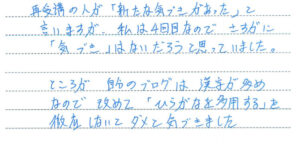 再受講の人が「新たな気づきがあった」と
言いますが、私は4回目なので さすがに
「気づき」はないだろうと思っていました。
ところが 自分のブログは 漢字が多め
なので 改めて「ひらがなを多用する」を
徹底しないとダメと気づきました